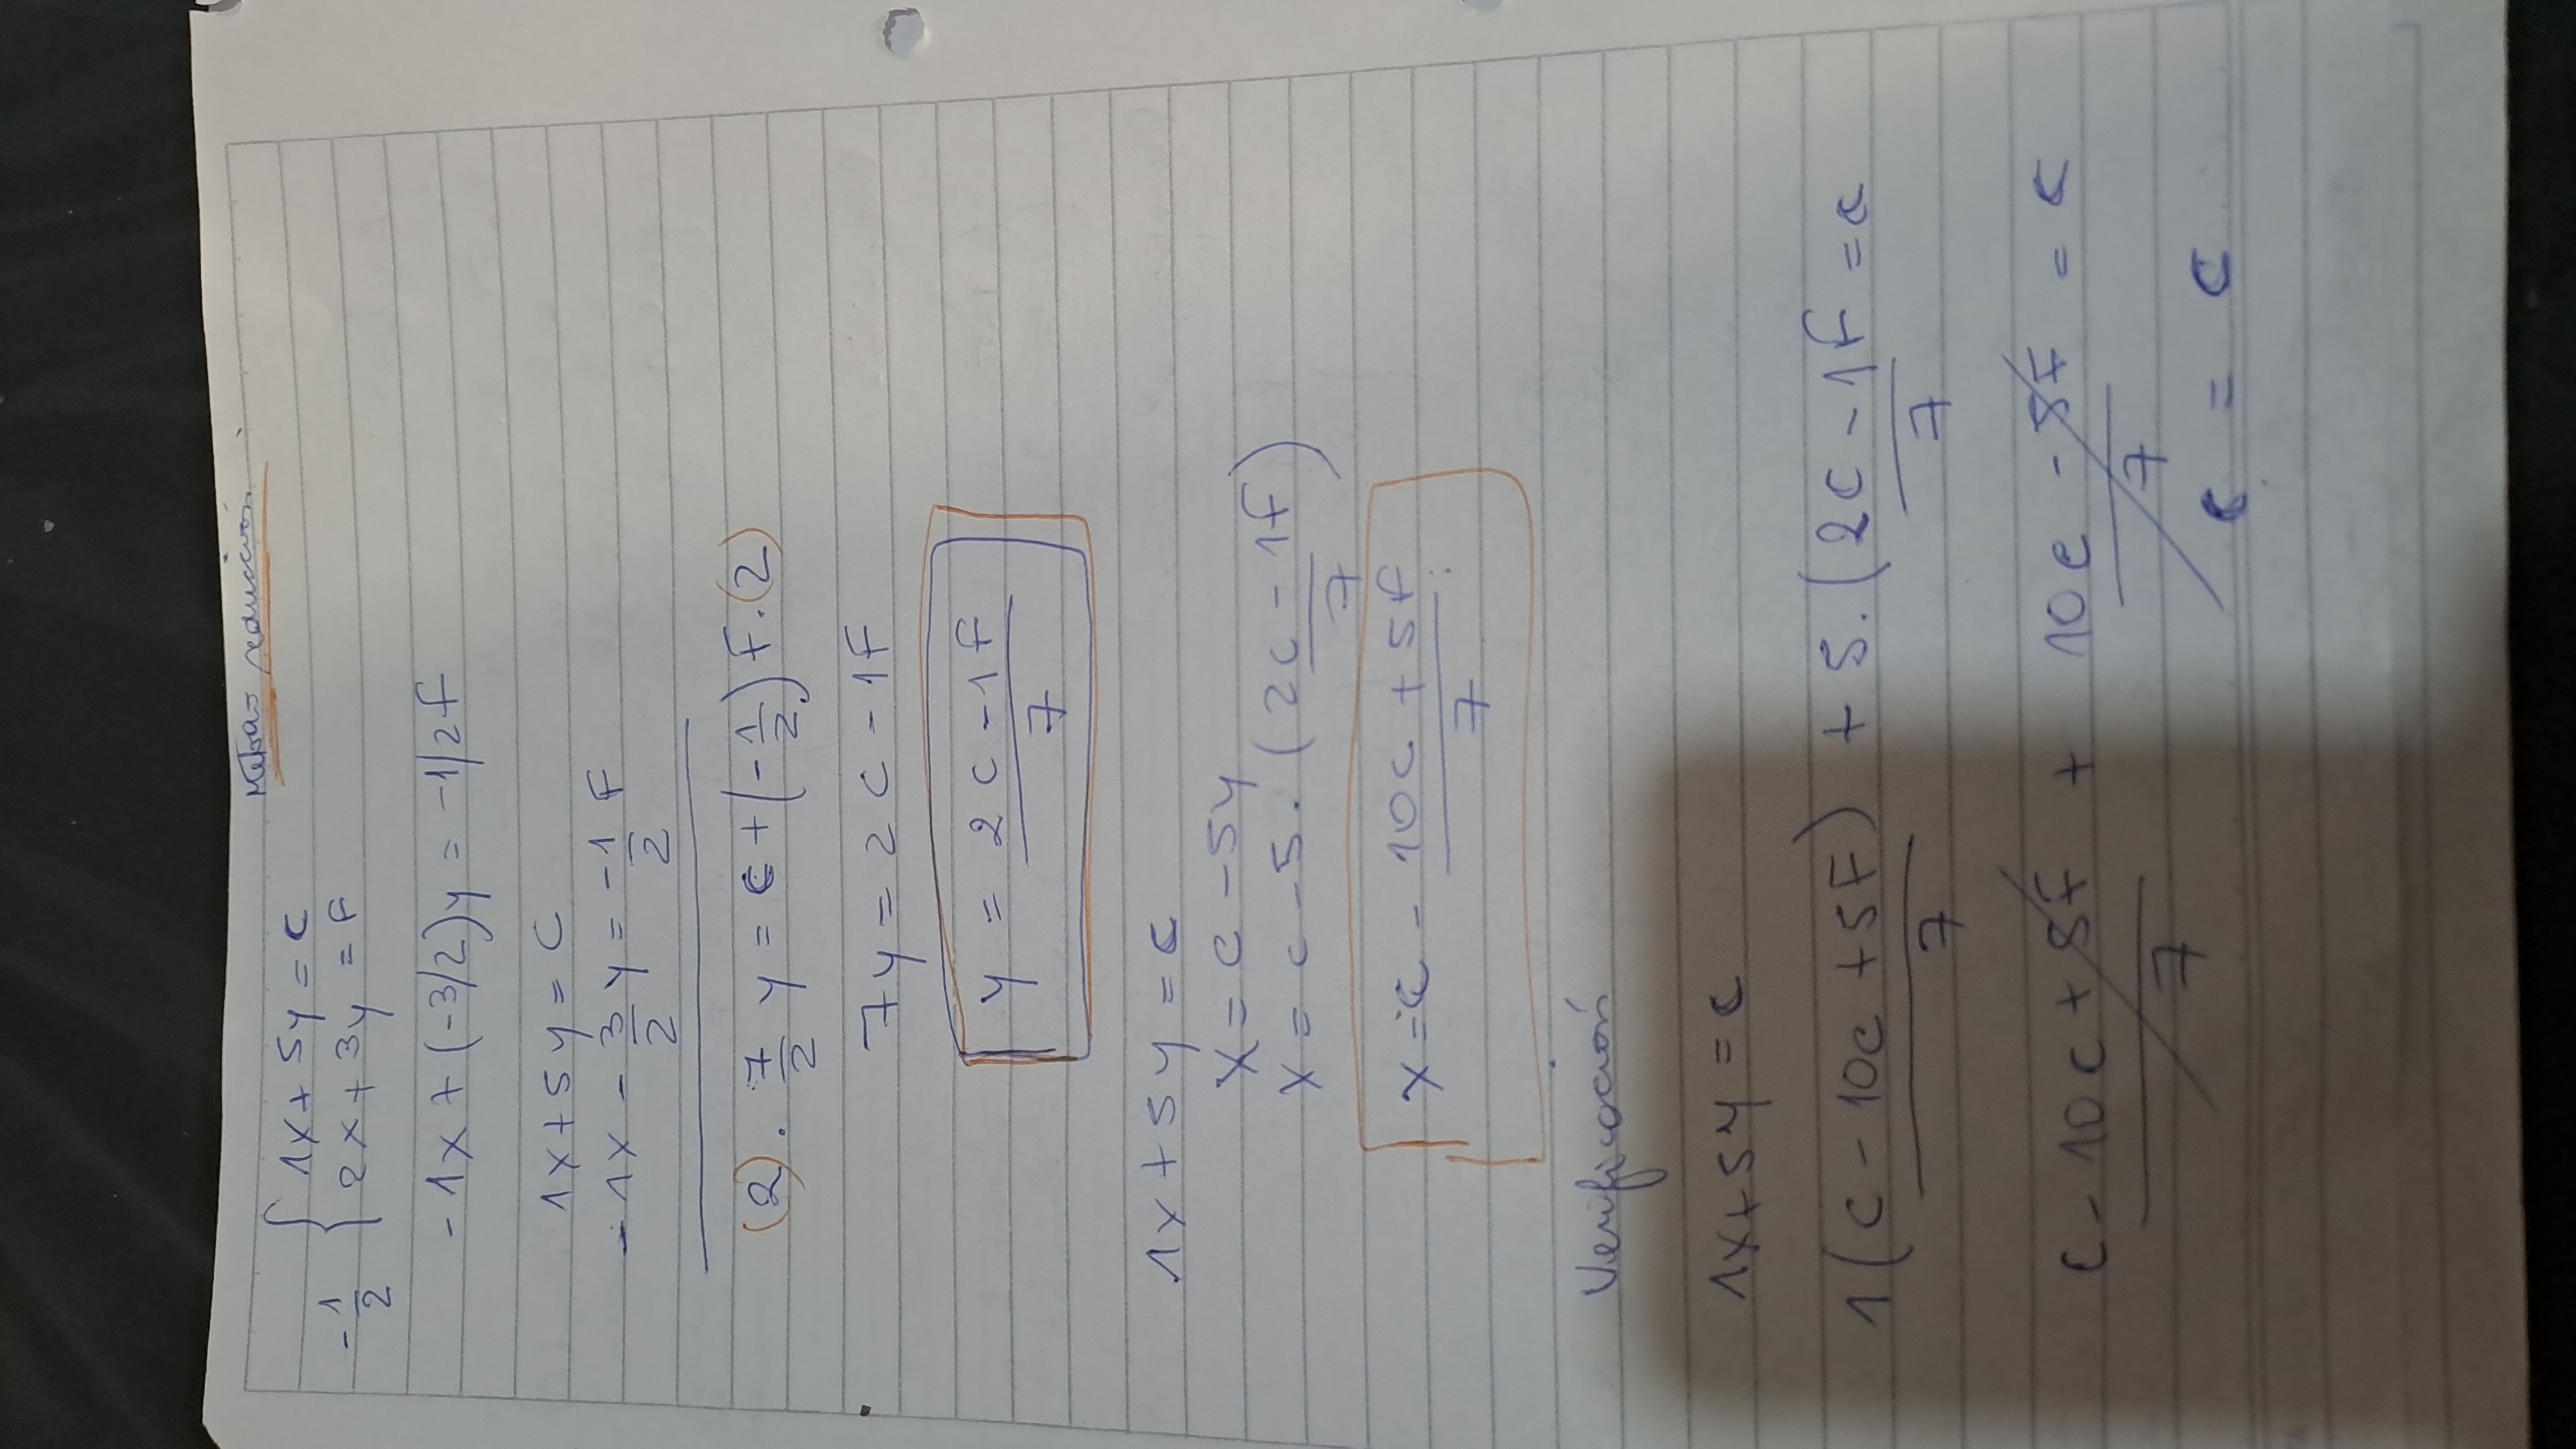 Método reducción
1x + 5y = C
-1/2 2x + 3y = F
-1x + (-3/2)y = -1/2 F
1x + 5y = C
-1x - 3/2 y = -1/2 F
(2). 7/2 y = C + (-1/2) F.(2)
7y = 2C - 1F
y = 2C - 1F / 7
1x + 5y = C
x = C - 5y
x = C - 5. (2C - 1F / 7)
x = C - 10C + 5F / 7
Verificación
1x + 5y = C
1(C - 10C + 5F / 7) + 5. (2C - 1F / 7 = C
C - 10C + 5F / 7 + 10C - 5F / 7 = C
C = C